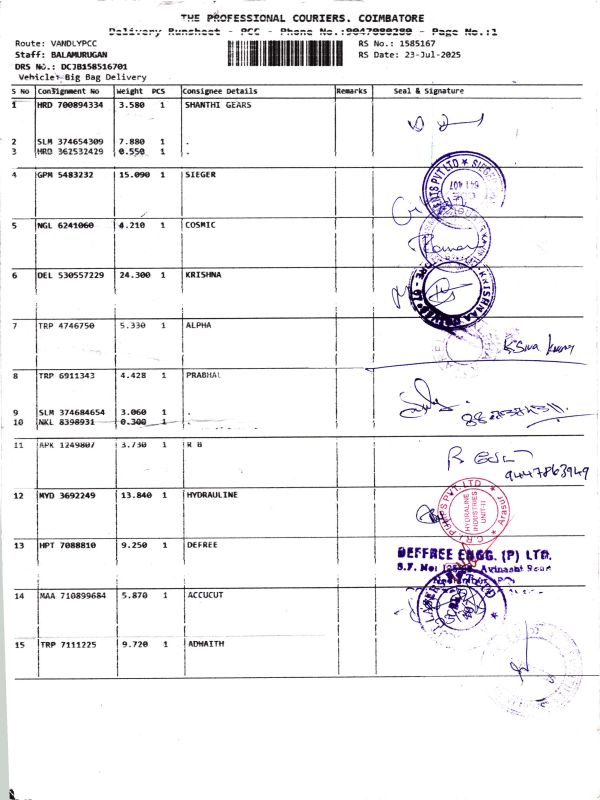 THE PROFESSIONAL COURIERS. COIMBATORE
Delivery Runsheet - PCC - Phone No.:9047080280 - Page No.:1
Route: VANDLYPCC
RS No.: 1585167
Staff: BALAMURUGAN
RS Date: 23-Jul-2025
DRS No.: DCJB158516701
Vehicle: Big Bag Delivery
S No Consignment No Weight PCS Consignee Details Remarks Seal & Signature
1 HRD 700894334 3.580 1 SHANTHI GEARS
2 SLM 374654309 7.880 1 .
3 HRD 362532429 0.550 1 .
4 GPM 5483232 15.090 1 SIEGER
5 NGL 6241060 4.210 1 COSMIC
6 DEL 530557229 24.300 1 KRISHNA
7 TRP 4746750 5.330 1 ALPHA
K Siva Kumar
8 TRP 6911343 4.428 1 PRABHAL
9 SLM 374684654 3.060 1 .
10 NKL 8398931 0.300 1 .
11 APK 1249807 3.730 1 R B
9447863949
12 MYD 3692249 13.840 1 HYDRAULINE
C.R.I. PUMPS PVT. LTD
HYDRAULINE
INDUSTRIES
UNIT-II
13 HPT 7088810 9.250 1 DEFREE
DEFFREE ENGG. (P) LTD.
S.F. No: Avinashi Road
14 MAA 710899684 5.870 1 ACCUCUT
15 TRP 7111225 9.720 1 ADWAITH